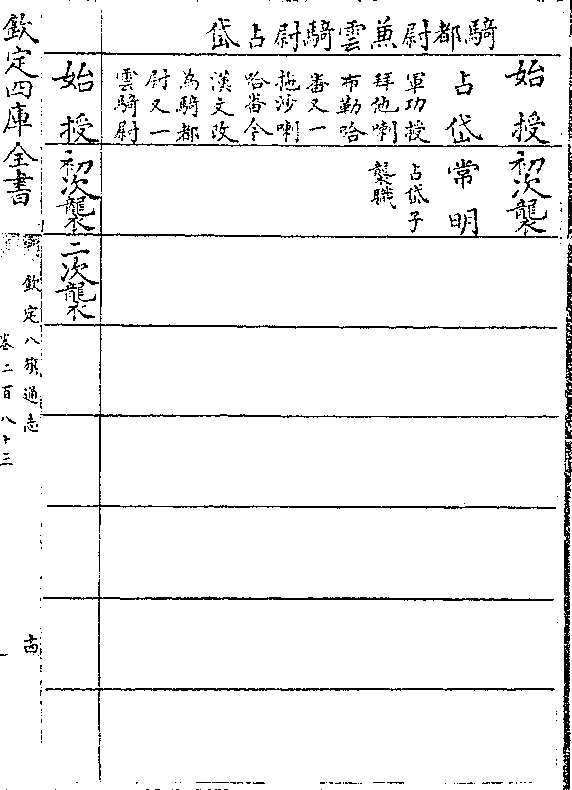 騎都尉兼雲騎尉占岱
始授
占岱
軍功授
拜他喇
布勒哈
番又一
拖沙喇
哈番今
漢文改
為騎都
尉又一
雲騎尉
初次襲
常明
占岱子
襲職
始授
初次襲
二次襲
欽定四庫全書
欽定八旗通志
卷二百八十三
十四